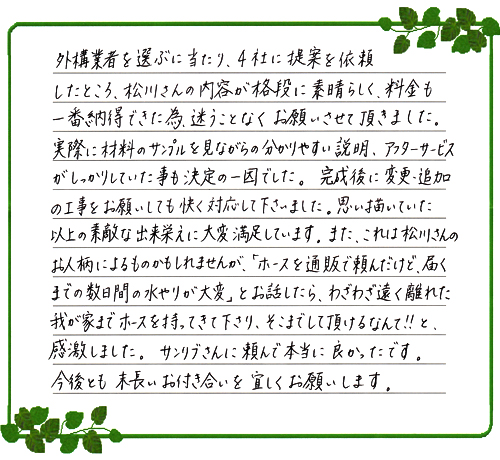 外構業者を選ぶに当たり、4社に提案を依頼
したところ、松川さんの内容が格段に素晴らしく、料金も
一番納得できた為、迷うことなくお願いさせて頂きました。
実際に材料のサンプルを見ながらの分かりやすい説明、アフターサービス
がしっかりしていた事も決定の一因でした。完成後に変更・追加
の工事をお願いしても快く対応して下さいました。思い描いていた
以上の素敵な出来栄えに大変満足しています。また、これは松川さんの
お人柄によるものかもしれませんが、「ホースを通販で頼んだけど、届く
までの数日間の水やりが大変」とお話したら、わざわざ遠く離れた
我が家までホースを持ってきて下さり、そこまでして頂けるなんて!!と、
感激しました。サンリブさんに頼んで本当に良かったです。
今後とも末長いお付き合いを宜しくお願いします。